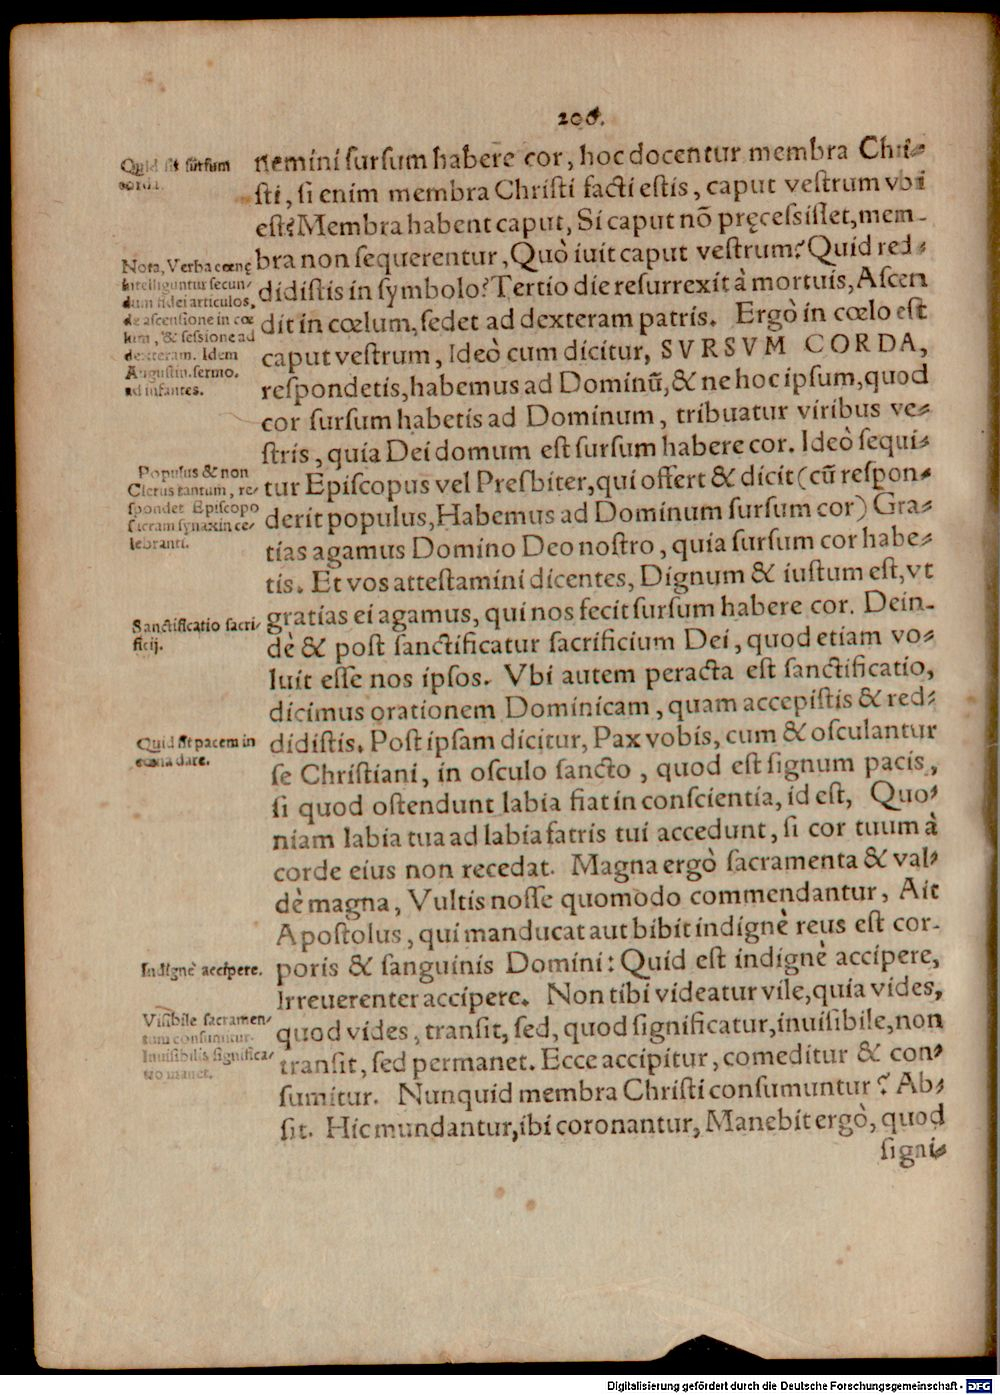 206.
Quid sit sursum
corda.
nemini sursum habere cor, hoc docentur membra Chri⸗
sti, si enim membra Christi facti estis, caput vestrum vbi
est? Membra habent caput, Si caput nõ pręcessisset, mem-
Nota, Verba cœnę
intelliguntur secun⸗
dum fidei articulos,
de ascensione in cœ
lum, & sessione ad
dexteram. Idem
Augustin. sermo.
ad infantes.
bra non sequerentur, Quò iuit caput vestrum? Quid red⸗
didistis in symbolo? Tertio die resurrexit à mortuis, Ascen
dit in cœlum, sedet ad dexteram patris. Ergò in cœlo est
caput vestrum, Ideò cum dicitur, SVRSVM CORDA,
respondetis, habemus ad Dominũ, & ne hoc ipsum, quod
cor sursum habetis ad Dominum, tribuatur viribus ve⸗
stris, quia Dei domum est sursum habere cor. Ideò sequi⸗
Populus & non
Clerus tantum, re⸗
spondet Episcopo
sacram synaxin ce⸗
lebranti.
tur Episcopus vel Presbiter, qui offert & dicit (cũ respon⸗
derit populus, Habemus ad Dominum sursum cor) Gra⸗
tias agamus Domino Deo nostro, quia sursum cor habe⸗
tis. Et vos attestamini dicentes, Dignum & iustum est, vt
gratias ei agamus, qui nos fecit sursum habere cor. Dein-
Sanctificatio sacri⸗
ficij.
dè & post sanctificatur sacrificium Dei, quod etiam vo⸗
luit esse nos ipsos. Vbi autem peracta est sanctificatio,
dicimus orationem Dominicam, quam accepistis & red⸗
Quid sit pacem in
cœna dare.
didistis. Post ipsam dicitur, Pax vobis, cum & osculantur
se Christiani, in osculo sancto, quod est signum pacis,
si quod ostendunt labia fiat in conscientia, id est, Quo⸗
niam labia tua ad labia fatris tui accedunt, si cor tuum à
corde eius non recedat. Magna ergò sacramenta & val⸗
dè magna, Vultis nosse quomodo commendantur, Ait
Apostolus, qui manducat aut bibit indignè reus est cor-
Indignè accipere.
poris & sanguinis Domini: Quid est indignè accipere,
Irreuerenter accipere. Non tibi videatur vile, quia vides,
Visibile sacramen⸗
tum consumitur.
Inuisibilis significa⸗
tio manet.
quod vides, transit, sed, quod significatur, inuisibile, non
transit, sed permanet. Ecce accipitur, comeditur & con⸗
sumitur. Nunquid membra Christi consumuntur? Ab⸗
sit. Hic mundantur, ibi coronantur, Manebit ergò, quod
signi⸗
Digitalisierung gefördert durch die Deutsche Forschungsgemeinschaft - DFG